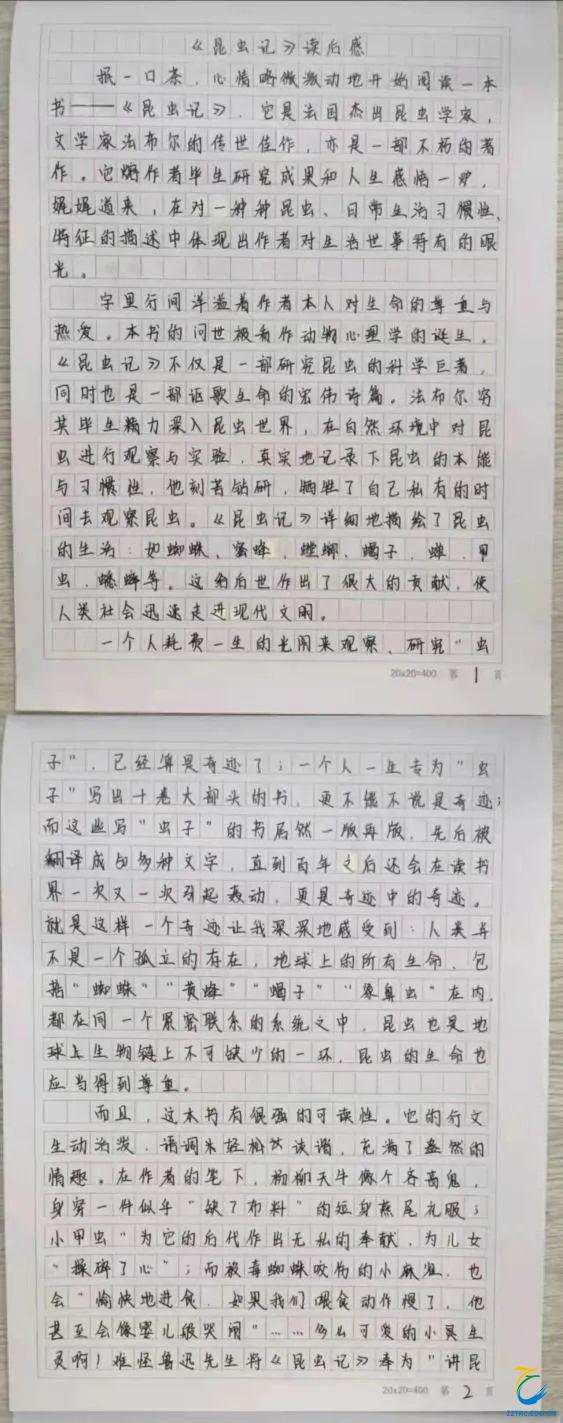 《昆虫记》读后感
抿一口茶，心情略微激动地开始阅读一本
书——《昆虫记》，它是法国杰出昆虫学家，
文学家法布尔的传世佳作，亦是一部不朽的著
作。它熔作者毕生研究成果和人生感悟一炉，
娓娓道来，在对一种种昆虫、日常生活习惯性、
特征的描述中体现出作者对生活世事特有的眼
光。
字里行间洋溢着作者本人对生命的尊重与
热爱。本书的问世被看作动物心理学的诞生。
《昆虫记》不仅是一部研究昆虫的科学巨著，
同时也是一部讴歌生命的宏伟诗篇。法布尔穷
其毕生精力深入昆虫世界，在自然环境中对昆
虫进行观察与实验，真实地记录下昆虫的本能
与习惯性，他刻苦钻研，牺牲了自己私有的时
间去观察昆虫。《昆虫记》详细地描绘了昆虫
的生活：如蜘蛛、蜜蜂、螳螂、蝎子、蝉、甲
虫、蟋蟀等。这为后世作出了很大的贡献，使
人类社会迅速走进现代文明。
一个人耗费一生的光阴来观察、研究“虫
20x20=400 第 1 页
子”，已经算是奇迹了；一个人一生专为“虫
子”写出十卷大部头的书，更不能不说是奇迹；
而这些写“虫子”的书居然一版再版，先后被
翻译成50多种文字，直到百年之后还会在读书
界一次又一次引起轰动，更是奇迹中的奇迹。
就是这样一个奇迹让我深深地感受到：人类并
不是一个孤立的存在，地球上的所有生命、包
括“蜘蛛”“黄蜂”“蝎子”“象鼻虫”在内，
都在同一个紧密联系的系统之中，昆虫也是地
球上生物链上不可缺少的一环，昆虫的生命也
应当得到尊重。
而且，这本书有很强的可读性。它的行文
生动活泼，语调轻松诙谐，充满了盎然的
情趣。在作者的笔下，杨柳天牛像个吝啬鬼，
身穿一件似乎“缺了布料”的短身燕尾礼服；
小甲虫“为它的后代作出无私的奉献，为儿女
“操碎了心”；而被毒蜘蛛咬伤的小麻雀，也
会“愉快地进食，如果我们喂食动作慢了，他
甚至会像婴儿般哭闹”……多么可爱的小灵生
灵啊！难怪鲁迅先生将《昆虫记》奉为“讲昆
20x20=400 第 2 页
ZZTRC.EDU.CN